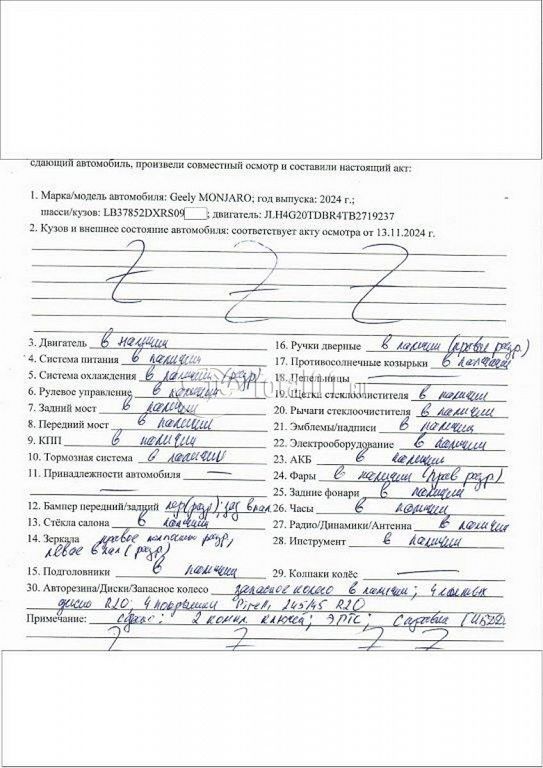 сдающий автомобиль, произвели совместный осмотр и составили настоящий акт:
1. Марка/модель автомобиля: Geely MONJARO; год выпуска: 2024 г.;
шасси/кузов: LB37852DXRS09 ; двигатель: Л.H4G20TDBR4TB2719237
2. Кузов и внешнее состояние автомобиля: соответствует акту осмотра от 13.11.2024 г.
3. Двигатель в наличии
4. Система питания в наличии
5. Система охлаждения в наличии (разр)
6. Рулевое управление в наличии
7. Задний мост в наличии
8. Передний мост в наличии
9. КПП в наличии
10. Тормозная система в наличии
11. Принадлежности автомобиля —
12. Бампер передний/задний (разр); зад в нал
13. Стёкла салона в наличии
14. Зеркала правое полностью разр,
левое в нал (разр)
15. Подголовники в наличии
16. Ручки дверные в наличии (правые разр.)
17. Противосолнечные козырьки в наличии
18. Пепельницы —
19. Щетка стеклоочистителя в наличии
20. Рычаги стеклоочистителя в наличии
21. Эмблемы/надписи в наличии
22. Электрооборудование в наличии
23. АКБ в наличии
24. Фары в наличии (прав разр)
25. Задние фонари в наличии
26. Часы в наличии
27. Радио/Динамики/Антенна в наличии
28. Инструмент в наличии
29. Колпаки колёс —
30. Авторезина/Диски/Запасное колесо запасное колесо в наличии; 4 литых
диска R20; 4 покрышки Pirelli 245/45 R20
Примечание: сдано: 2 компл ключа; ЭПТС;